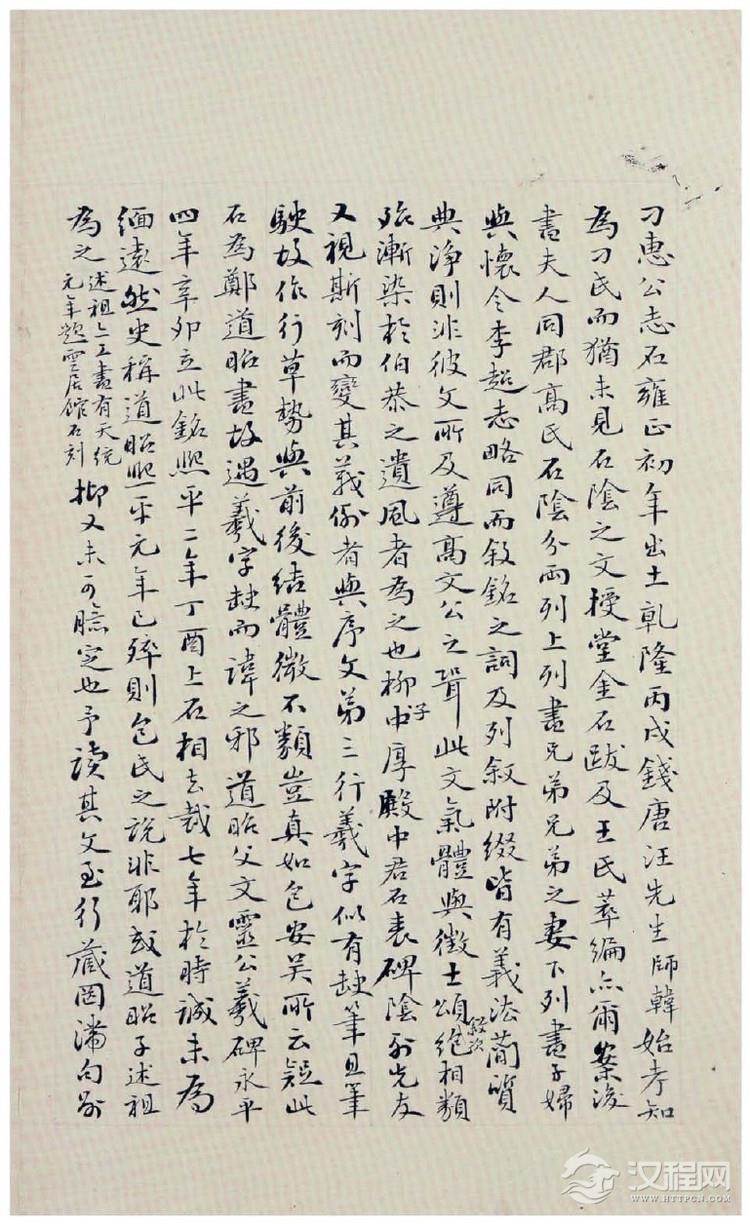 刁惠公志石雍正初年出土乾隆丙戌錢唐汪先生師韓始考知
為刁氏而猶未見石陰之文授堂金石跋及王氏萃編亦爾案後
書夫人同郡高氏石陰分兩列上列書兄弟兄弟之妻下列書子婦
與懷令李超志略同而敘銘之詞及列敘附綴皆有義法簡質
典淨則非彼文所及遵高文公之聳此文氣體與徵士頌絕相類
敘次
殆漸染於伯恭之遺風者為之也柳子中厚殿中君石表碑陰列先友
又視斯刻而變其義例者與序文第三行羲字似有缺筆且筆
駛故作行草勢與前後結體微不類豈真如包安吳所云疑此
石為鄭道昭書故遇羲字缺而諱之邪道昭父文靈公羲碑永平
四年辛卯立此銘熙平二年丁酉上石相去裁七年於時誠未為
緬遠然史稱道昭熙平元年已殂則包氏之說非耶或道昭子述祖
為之述祖亦工書有天統元年題雲居館石刻抑又未可臆定也予讀其文至行藏罔滯句

汉程网
WWW.HTTPCN.COM